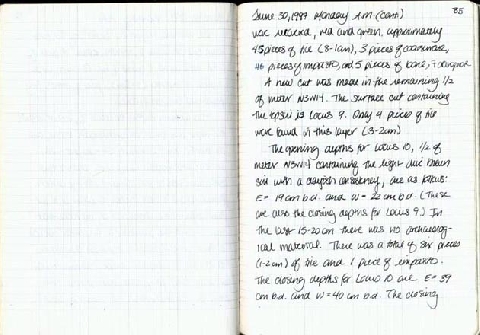 85
June 30, 1997 Monday A.M. (cont)
were retrieved, red and green, approximately
45 pieces of tile (3-1cm), 3 pieces of
46 pieces of and 5 pieces of bone,
A new cut was made in the remaining 1/2
of meter The surface cut containing
the is Locus 9. Only 4 pieces of tile
were found in this layer (3-2cm)
The opening depths for Locus 10, 1/2 of
meter containing the light brown
soil with a clayish consistency, are as follows:
E = 19 cm b.d. and W = 22 cm b.d. (These
are also the closing depths for Locus 9.) In
the last 15-20 cm there was no archaeolog-
ical material. There was a total of six pieces
(1-2cm) of tile and 1 piece of
The closing depths for Locus 10 are E = 39
cm b.d. and W = 40 cm b.d. The closing